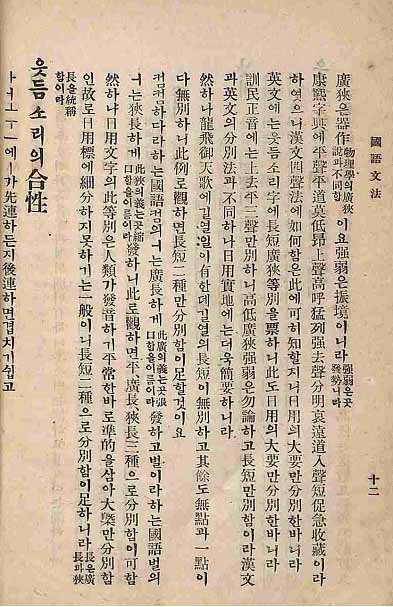 國語文法 十二
廣狹은器作物理學의廣狹說과不同함이요强弱은振境이니라强弱은곳發勢니라
康熙字典에平聲平道莫低昻上聲高呼猛烈强去聲分明哀遠道入聲短促急收藏이라
하엿으니漢文四聲法에如何함은此에可히知할지니日用의大要만分別한바니라
英文에는웃듬소리字에長短廣狹等別을票하니此도日用의大要만分別한바니라
訓民正音에는上去平三聲만別하니高低廣狹强弱은勿論하고長短만別함이라漢文
과英文의分別法과不同하나日用實地에는더욱簡要하니라
然하나龍飛御天歌에길열일이有한데길열의長短이無別하고其餘도無點과一點이
다無別하니此例로觀하면長短二種만分別함이足할것이요
검검하다라하는國語검의ㅓ는廣長하게此廣의義는곳張口함을이름이라發하고벌이라하는國語벌의
ㅓ는狹長하게此狹의義는곳縮口함을이름이라發하니此로觀하면平、廣長狹長三種으로分別함이可함
然하나日用文字의此等別은人類가發音하기平常한바로準的을삼아大槩만分別함
인故로日用標에細分하지못하기는一般이니長短二種으로分別함이足하니라長은廣長과狹
長을統稱함이라
웃듬소리의合性
ㅏㅓㅗㅜㅡㅣ에ㅣ가先連하든지後連하면겹치기쉽고